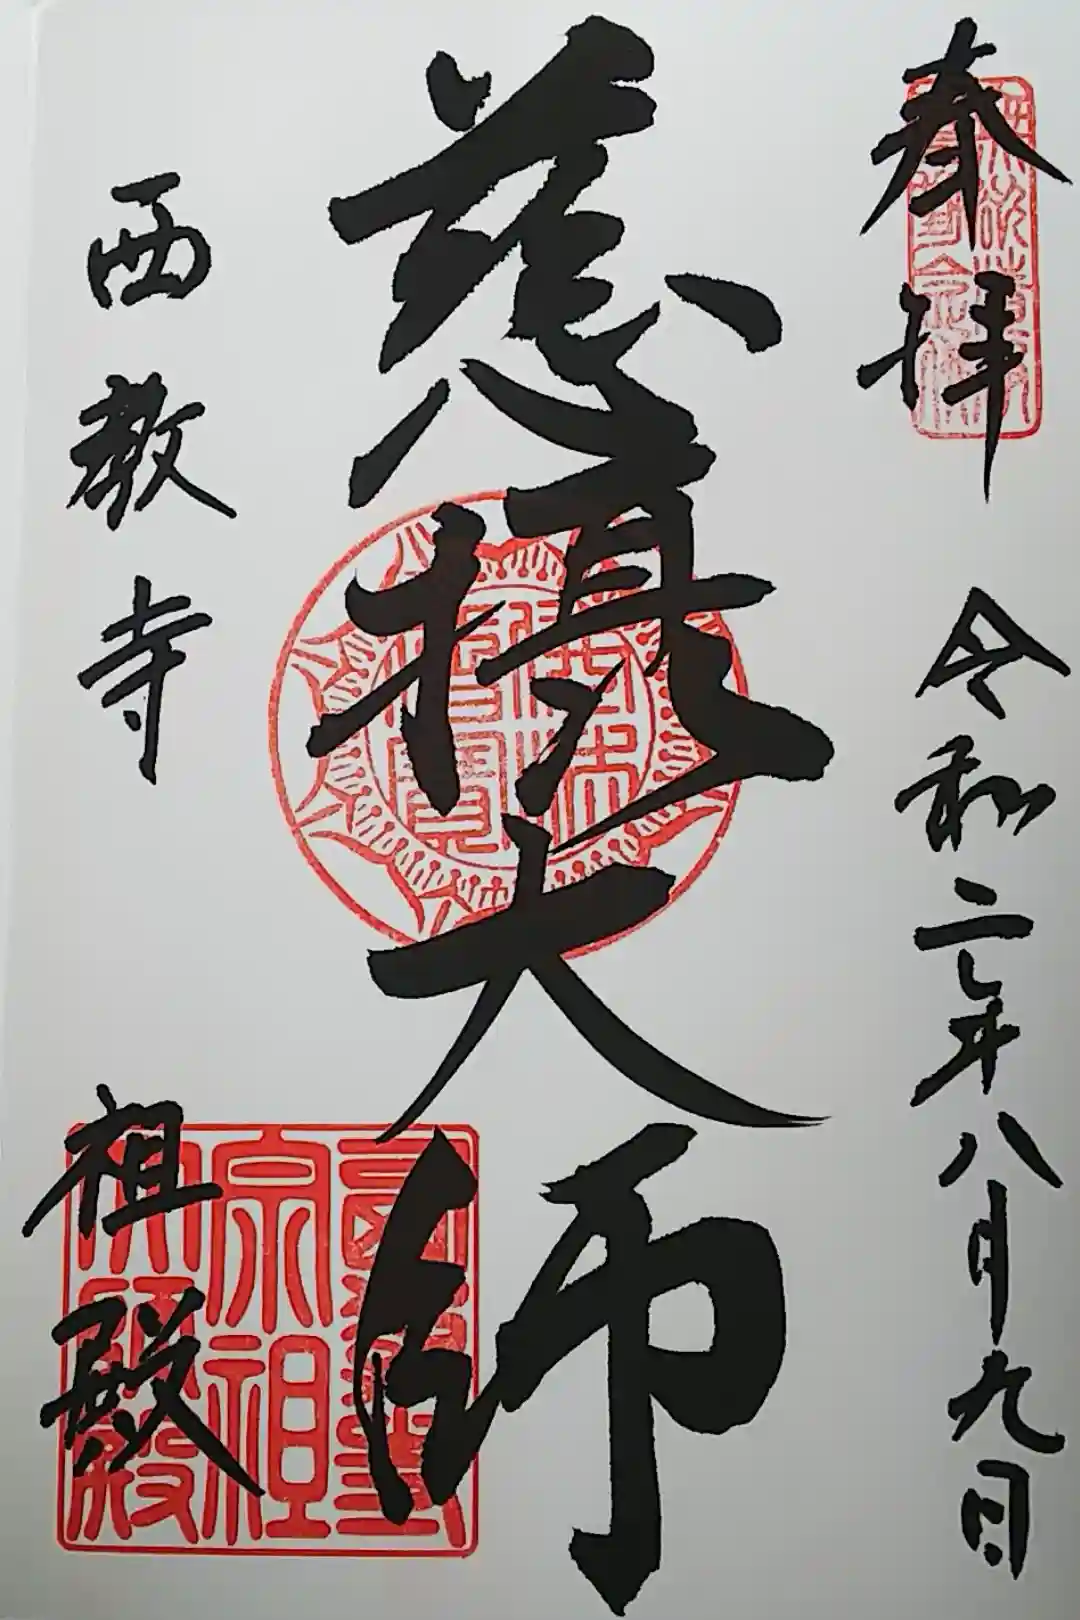 奉拝
令和二年八月九日
慈摂大師
西教寺
祖殿